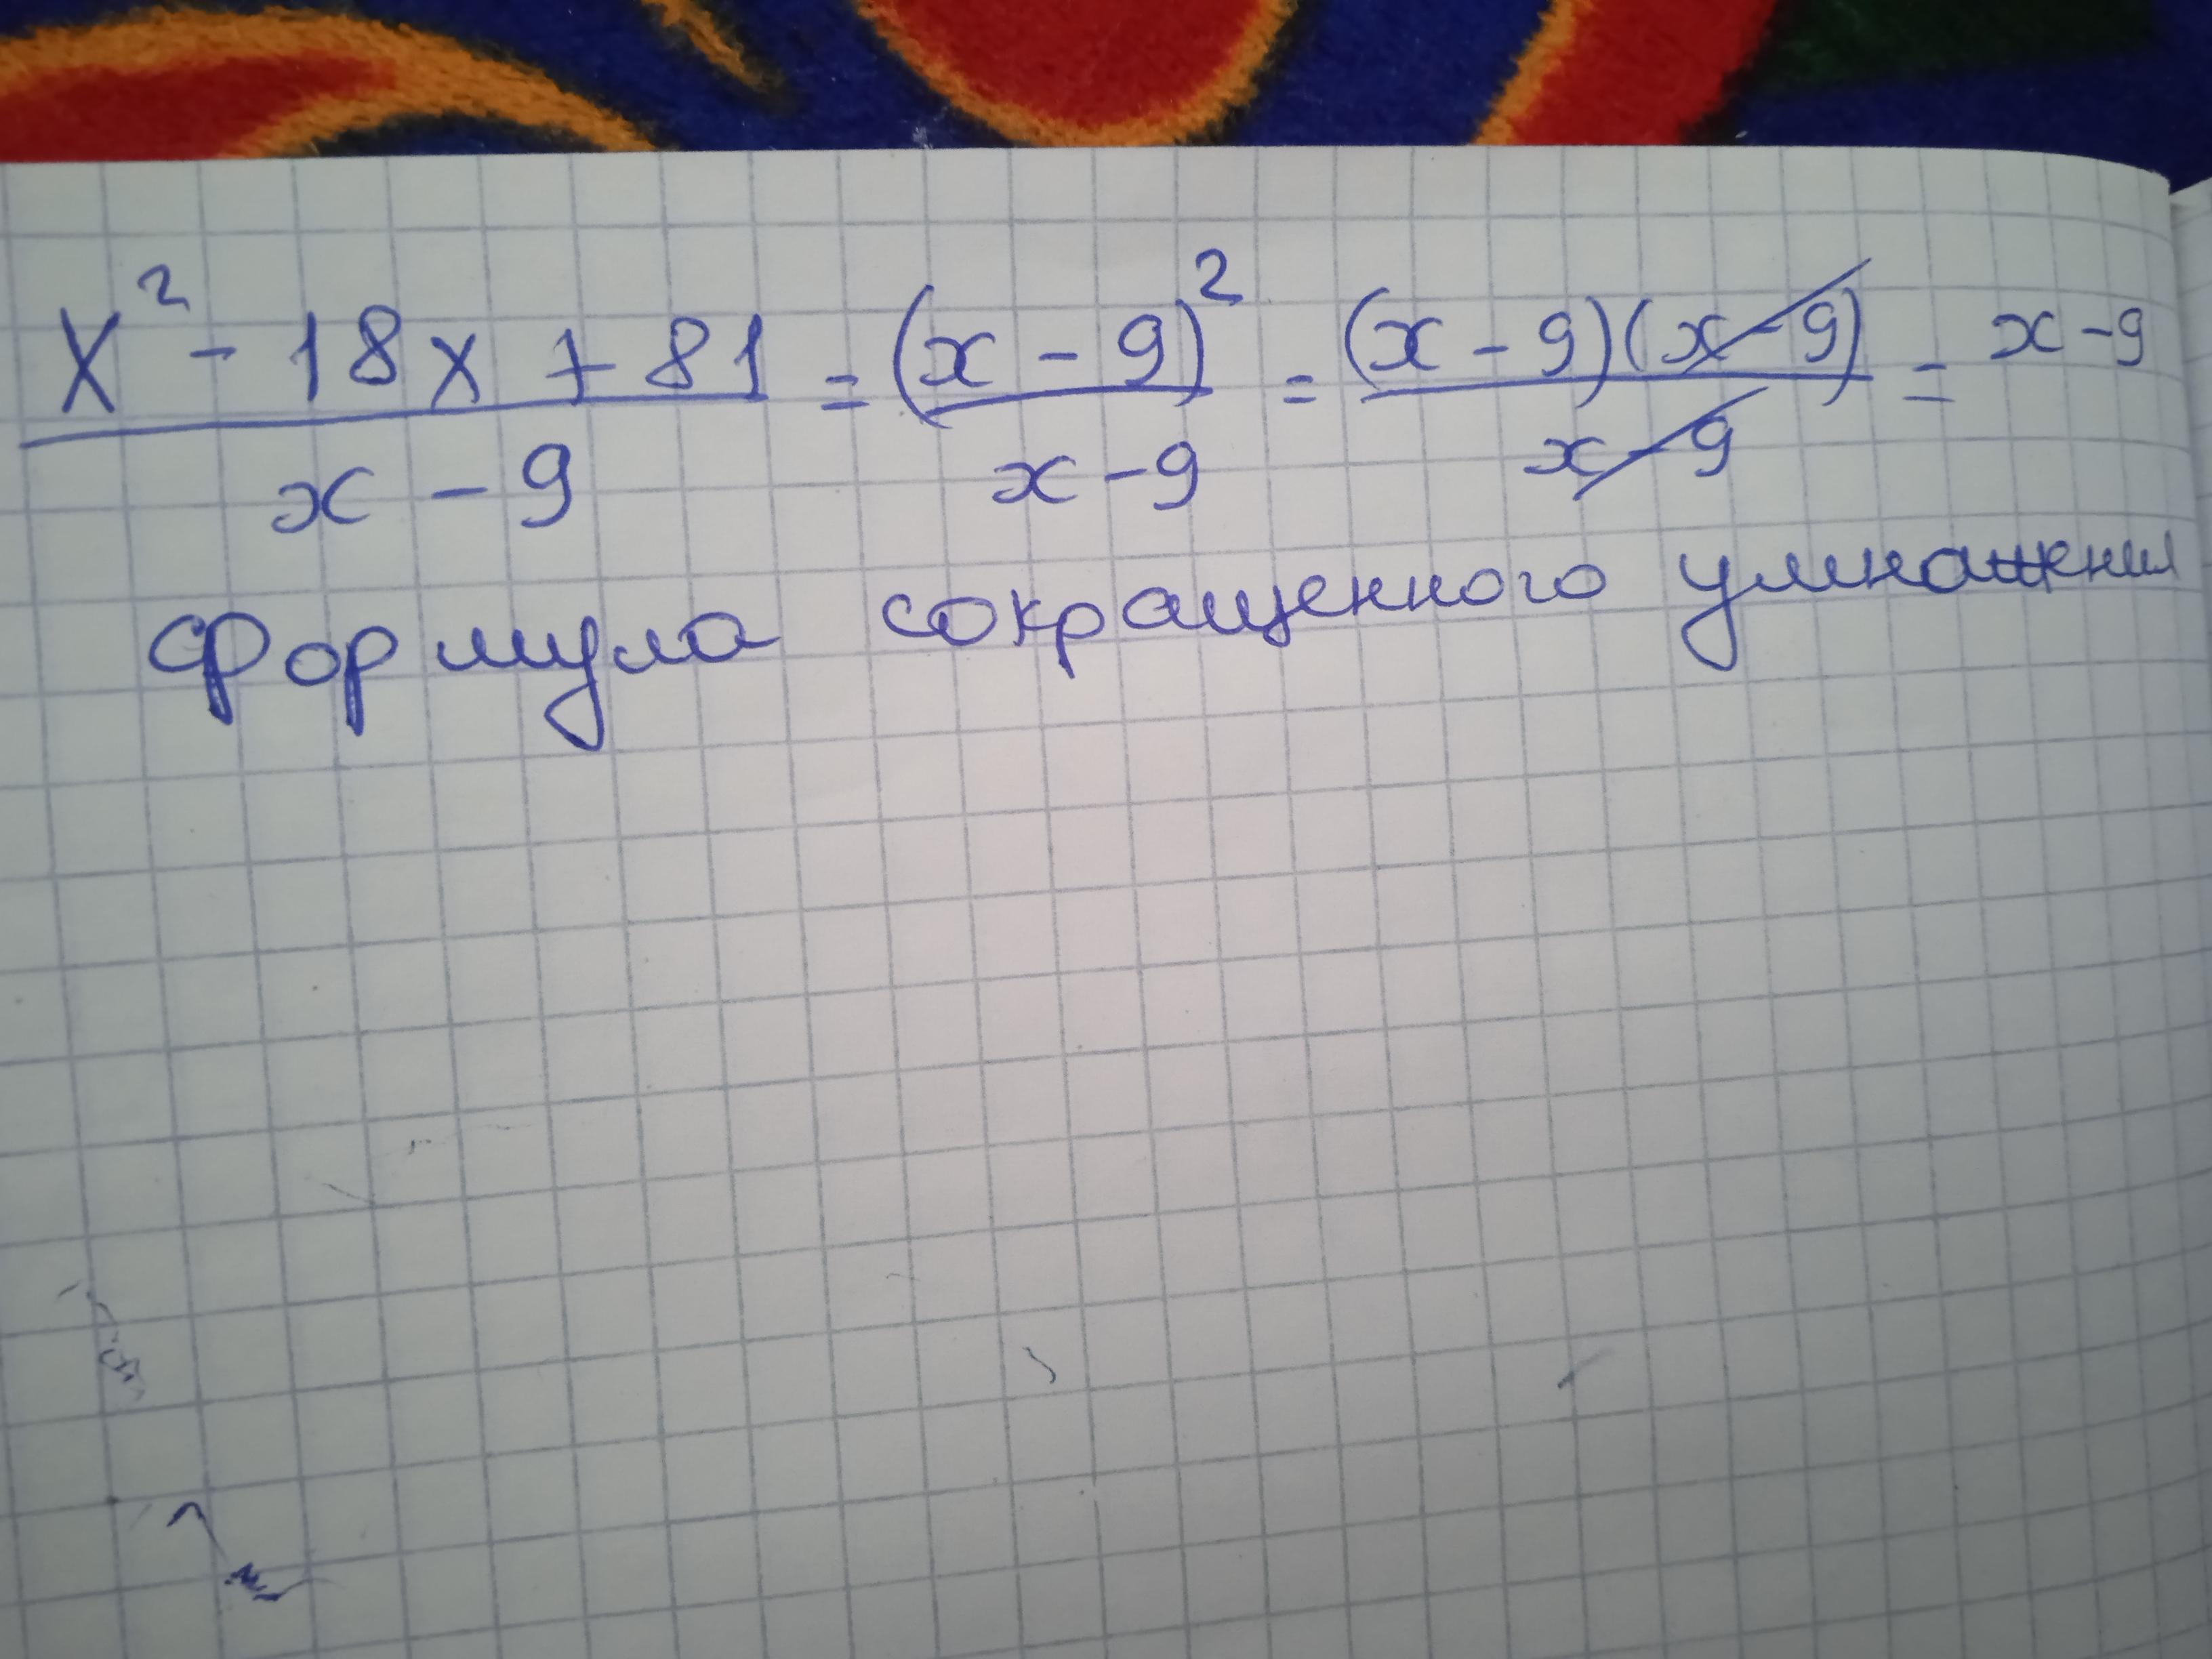 x² - 18x + 81 / x - 9 = (x - 9)² / x - 9 = (x - 9)(x - 9) / x - 9 = x - 9
формула сокращенного умножения